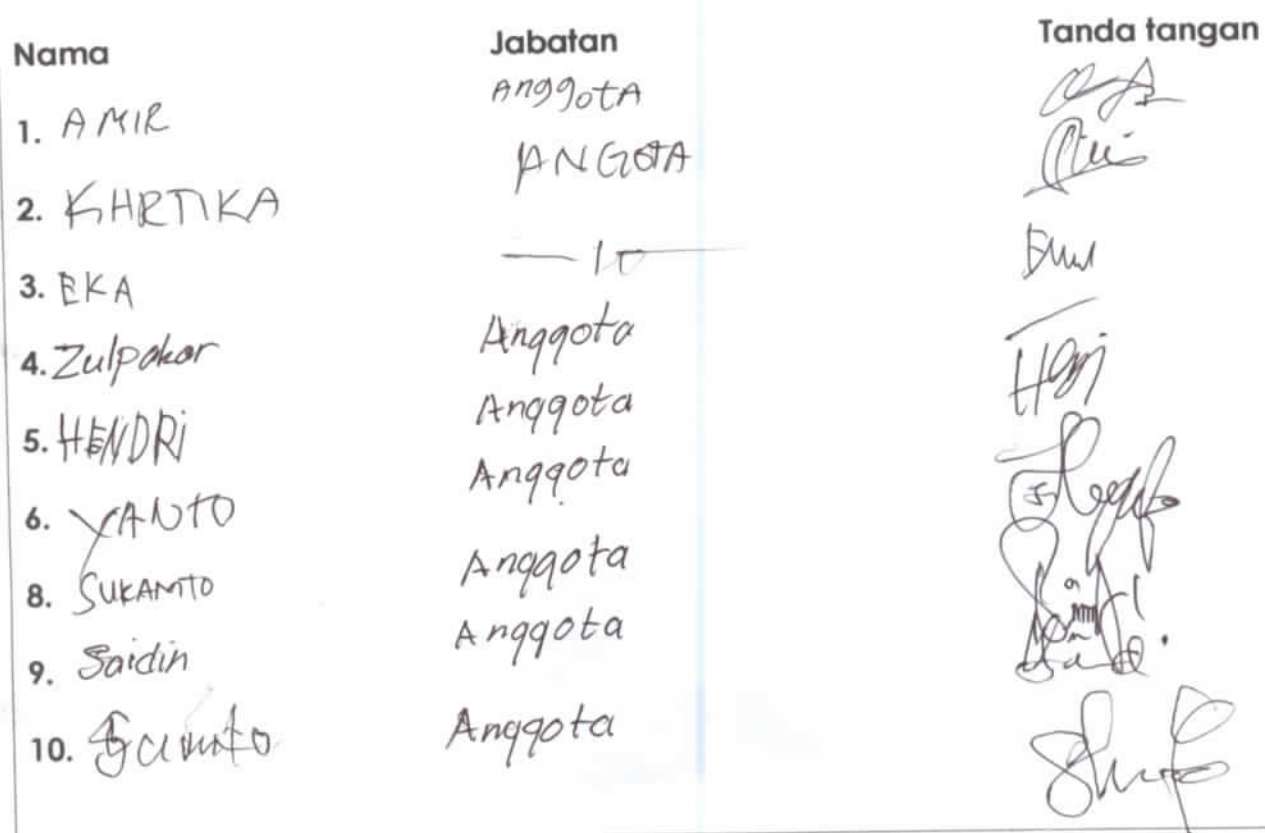 Nama Jabatan Tanda tangan
1. AMIR AnggotA
2. KHRTIKA ANGGOTA
3. EKA
4. Zulpakar Anggota
5. HENDRi Anggota
6. YANTO Anggota
8. SUKAMTO Anggota
9. Saidin Anggota
10. Anggota